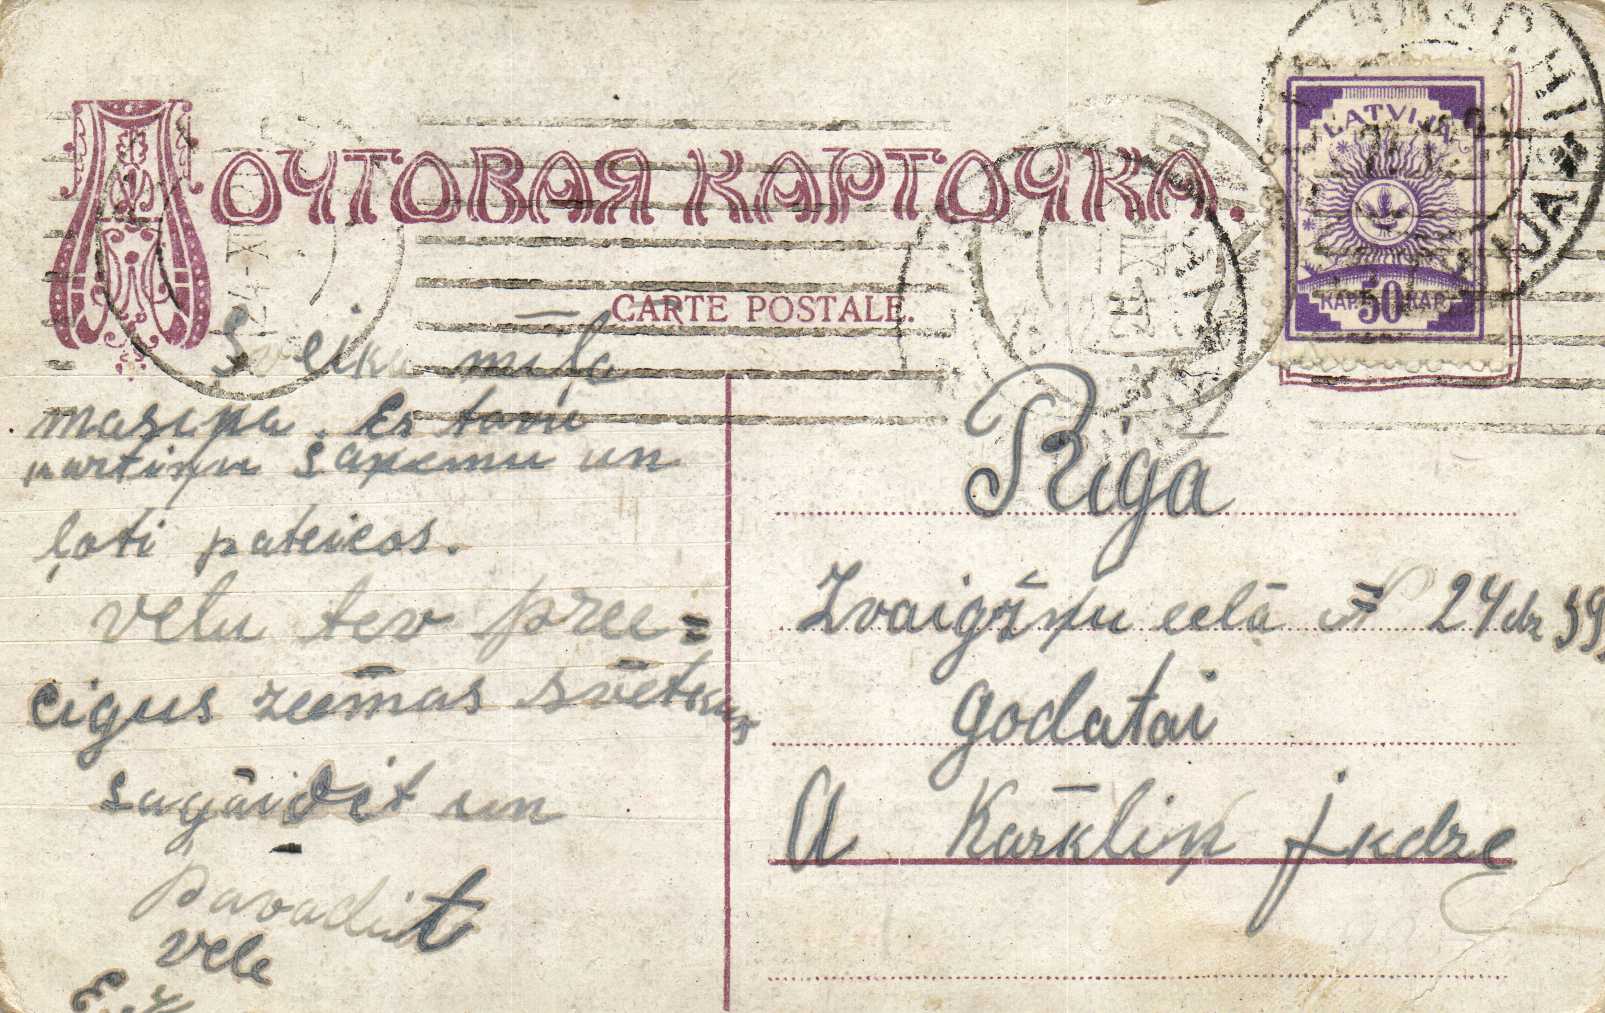 ПОЧТОВАЯ КАРТОЧКА.
CARTE POSTALE.
LATVIJA
KAP. 50 KAP.
24-XI
Sveika mīļa
masiņa. Es tavu
kartiņu saņemu un
ļoti pateicos.
vēlu tev pree=
cigus zeemas svētkus
sagāidit un
pavadit
vēle
E.
Rīgā
Zvaigžņu eelā № 24 dz 39
godatai
A Kārkliņ jkdze